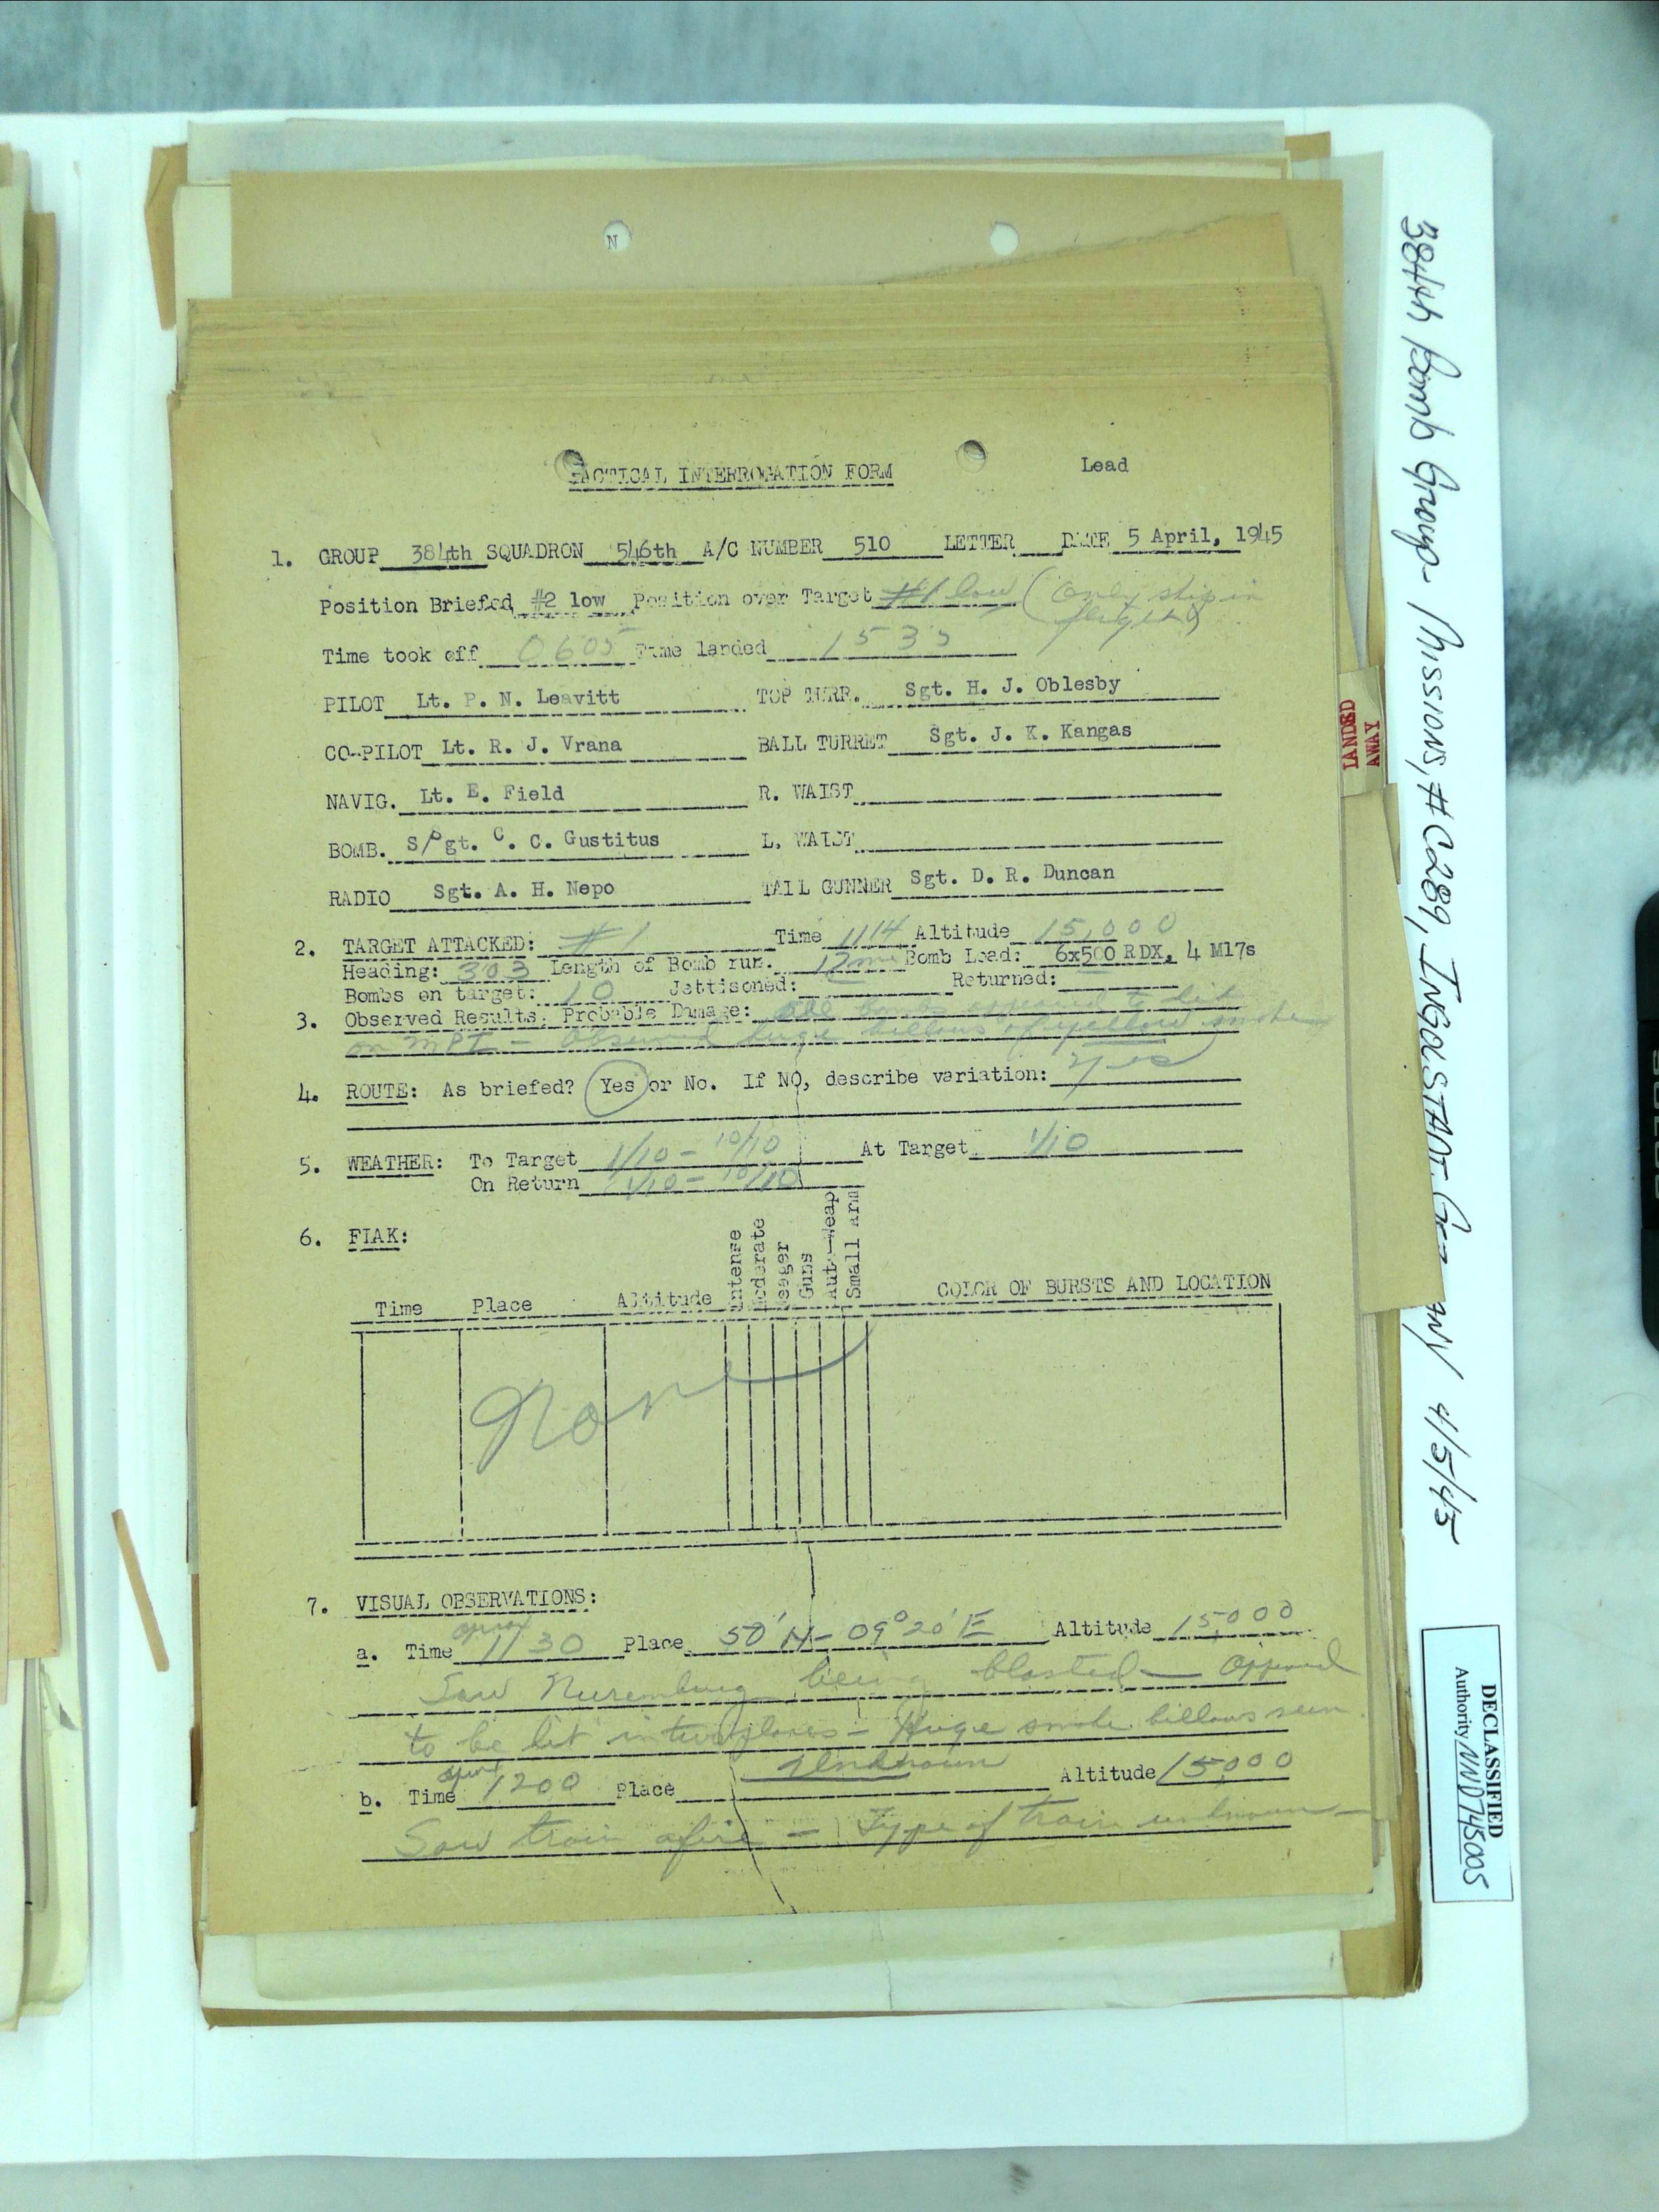 N
TACTICAL INTERROGATION FORM
Lead
1. GROUP 384th SQUADRON 546th A/C NUMBER 510 LETTER DATE 5 April, 1945
Position Briefed #2 low Position over Target #1 low (Only ship in
flight)
Time took off 0605 Time landed 1535
PILOT Lt. P. N. Leavitt TOP TURR. Sgt. H. J. Oblesby
CO-PILOT Lt. R. J. Vrana BALL TURRET Sgt. J. K. Kangas
NAVIG. Lt. E. Field R. WAIST
BOMB. S/Sgt. C. C. Gustitus L. WAIST
RADIO Sgt. A. H. Nepo TAIL GUNNER Sgt. D. R. Duncan
2. TARGET ATTACKED: #1 Time 1114 Altitude 15,000
Heading: 303 Length of Bomb run. 12 min Bomb Load: 6x500 RDX, 4 M17s
Bombs on target: 10 Jettisoned: Returned:
3. Observed Results, Probable Damage: All bombs appeared to hit
on MPI - Observed huge billows of yellow smoke
4. ROUTE: As briefed? Yes or No. If NO, describe variation: Yes
5. WEATHER: To Target 1/10 - 10/10 At Target 1/10
On Return 1/10 - 10/10
6. FLAK:
Time Place Altitude Intense Moderate Meager Guns Aut.-Weap Small arm COLOR OF BURSTS AND LOCATION
None
7. VISUAL OBSERVATIONS:
a. Time approx 1130 Place 50'N - 09°20'E Altitude 15,000
Saw Nuremburg being blasted - Appeared
to be hit in two places - Huge smoke billows seen.
b. Time approx 1200 Place Unknown Altitude 15,000
Saw train afire - Type of train unknown -
LANDED
AWAY
384th Bomb Group - Missions, # C289, INGOLSTADT, 4/5/45
DECLASSIFIED
Authority NND745005